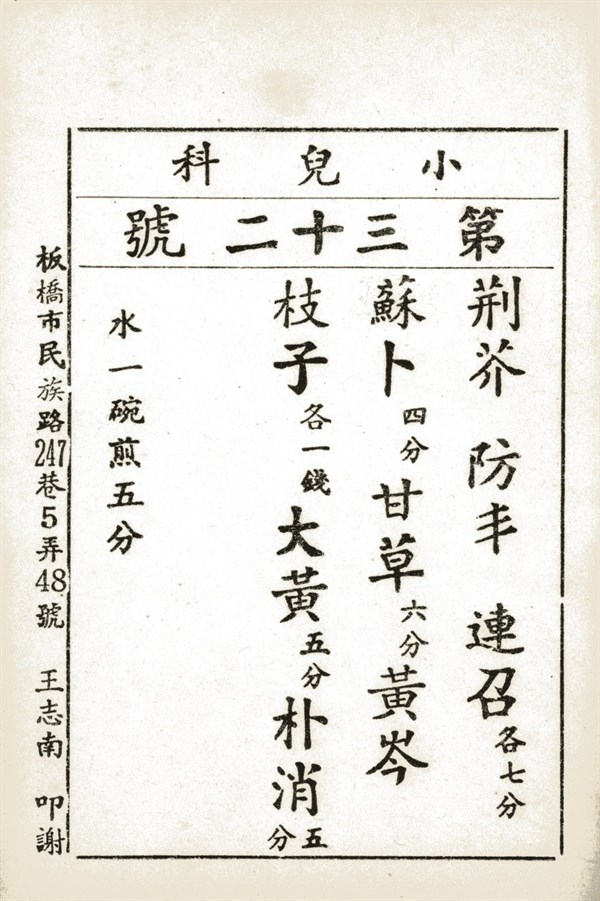 小兒科
第三十二號
荆芥 防丰 連召各七分
蘇卜四分甘草六分黃岑
枝子各一錢大黃五分朴消五分
水一碗煎五分
板橋市民族路247巷5弄48號 王志南 叩謝